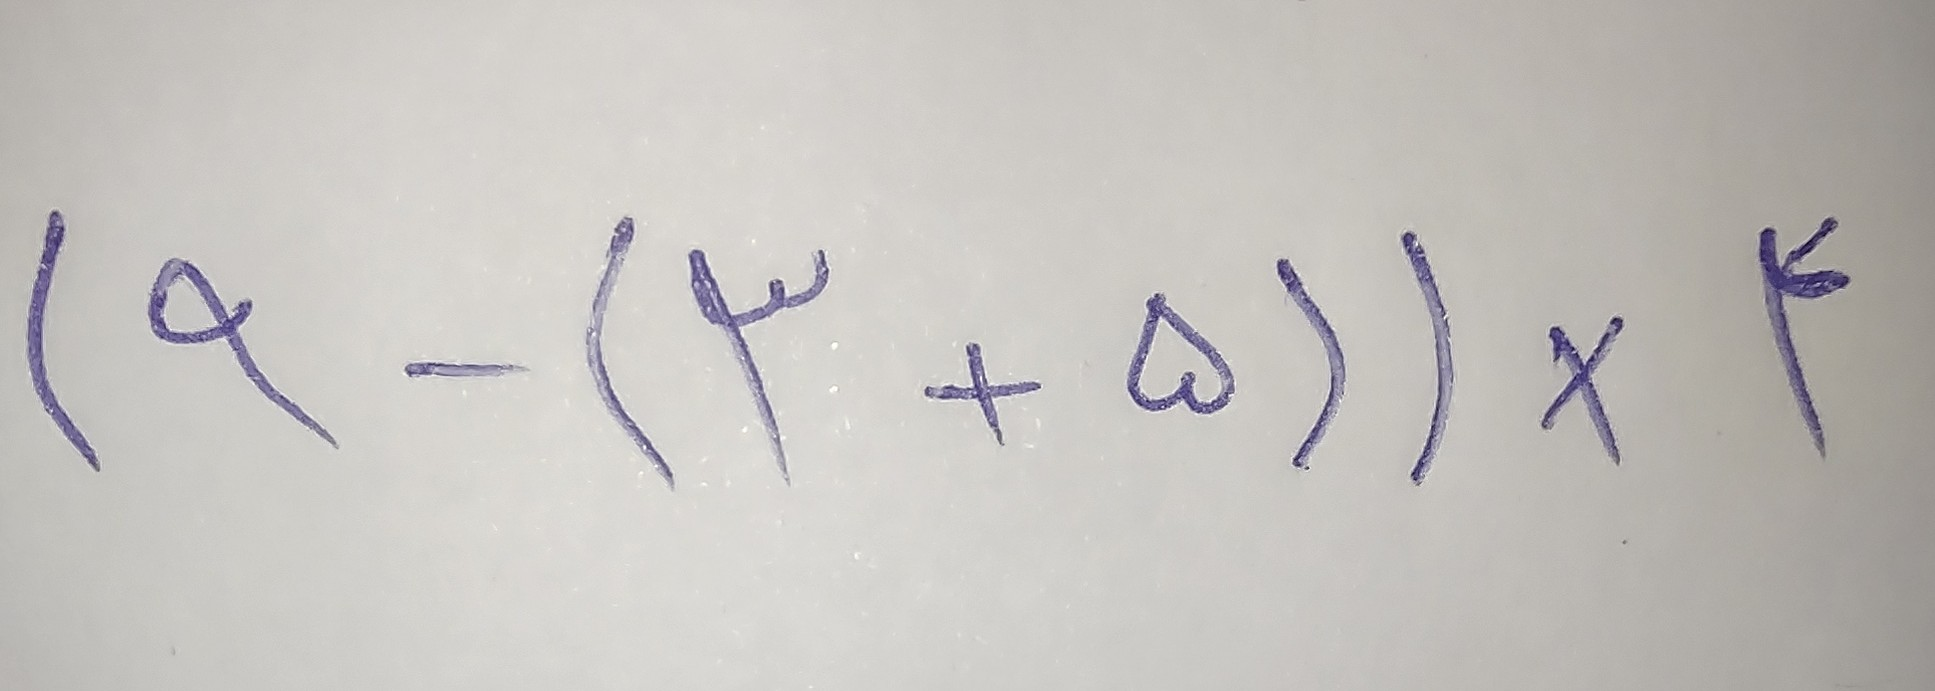 (۹ - (۳ + ۵)) × ۴